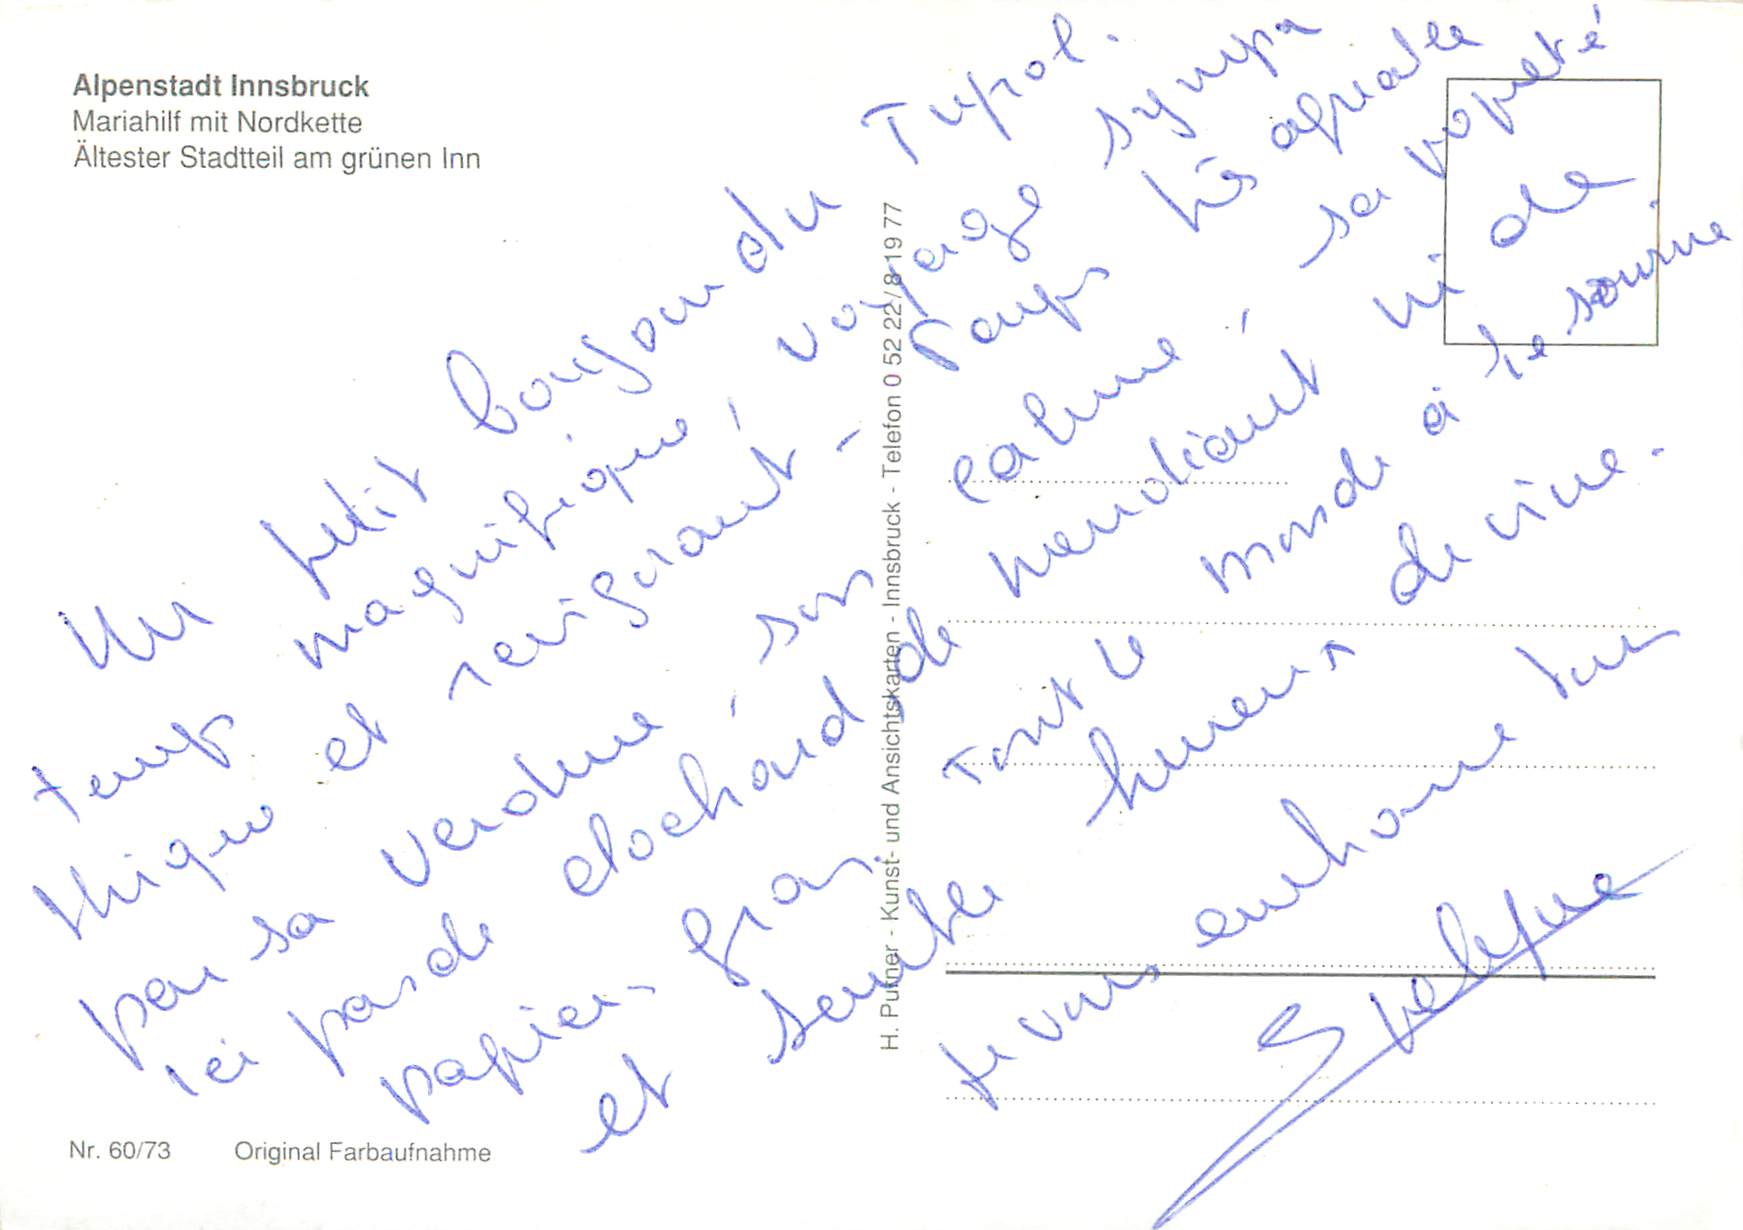 Alpenstadt Innsbruck
Mariahilf mit Nordkette
Ältester Stadtteil am grünen Inn
Un petit bonjour du Tyrol.
temps magnifique, voyage sympa
thique et revigorant - Pays très agréable
par sa verdure, son calme, sa propreté
ici pas de clochard de mendiant ni de
papiers gras. Tout le monde a le sourire
et semble heureux de vivre.
Je vous embrasse tous
H. Putner - Kunst- und Ansichtskarten - Innsbruck - Telefon 0 52 22 / 8 19 77
Nr. 60/73 Original Farbaufnahme